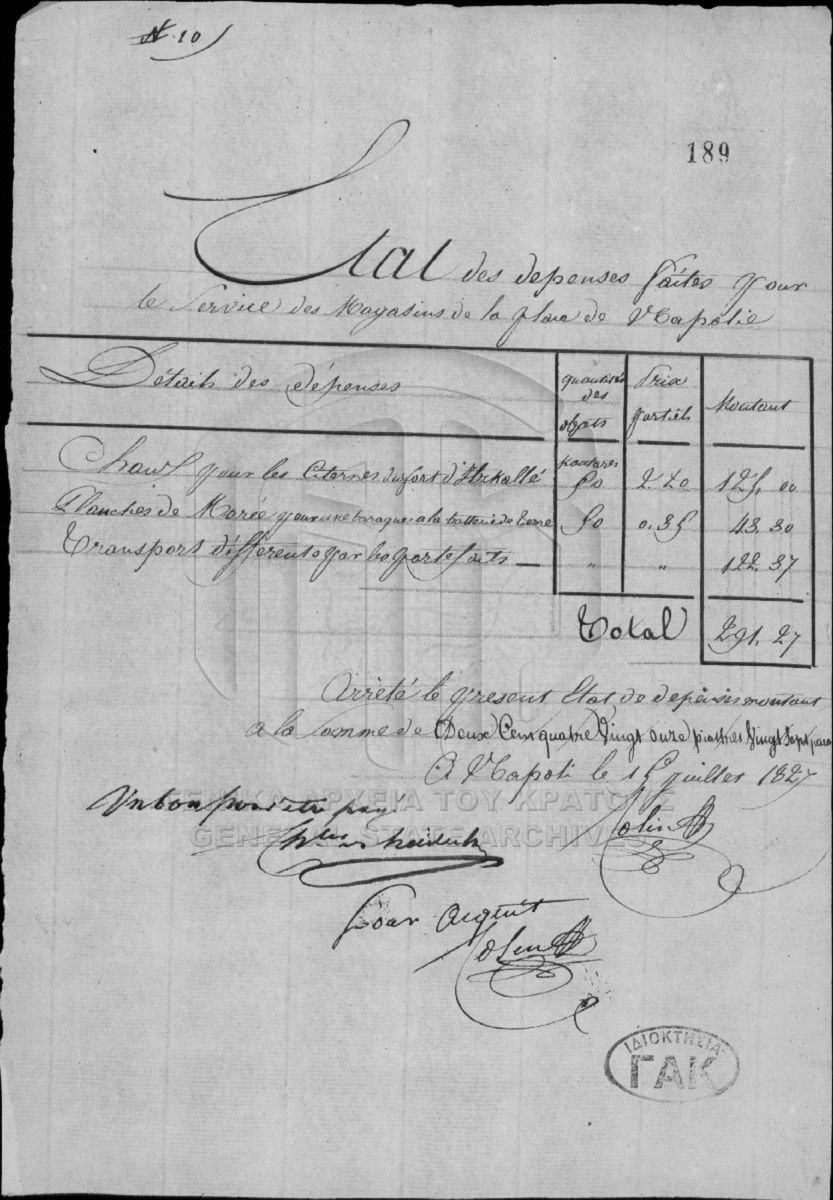 N. 10
189
Etat des depenses faites pour
le Service des Magasins de la place de Napolie
Détails des dépenses
quantités des objets
Prix partiels
Montant
kantares
Chaux pour les Citernes du fort d'Itzkallé 50 2.20 125.00
Planches de Morée pour une baraque a la batterie de terre 50 0.35 43.30
Transport différents par les portefaits — " " 122.37
Total 291.27
Arrêté le present Etat de depenses montant
a la somme de Deux Cent quatre Vingt onze piastres Vingt Sept para
A Napoli le 15 juillet 1827
Vu bon pour être payé
Colin
Pour acquit
Colin
ΓΕΝΙΚΑ ΑΡΧΕΙΑ ΤΟΥ ΚΡΑΤΟΥΣ
GENERAL STATE ARCHIVES
ΙΔΙΟΚΤΗΣΙΑ
ΓΑΚ